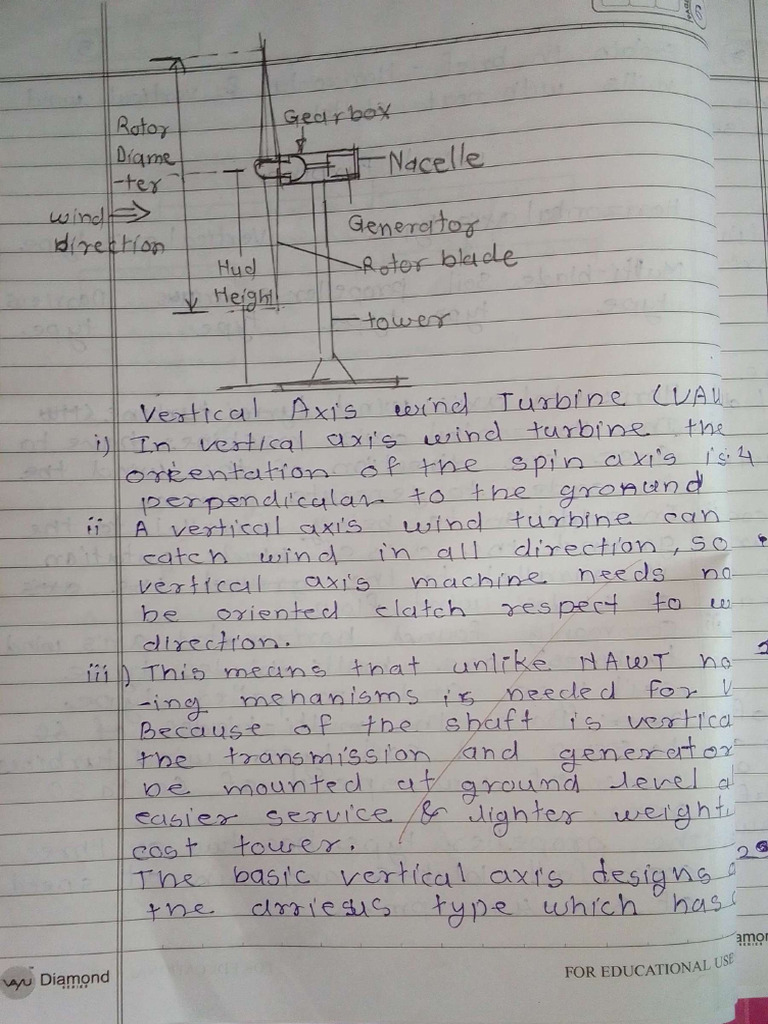 Gearbox
Rotor
Diame
-ter
Nacelle
wind
direction
Generator
Rotor blade
Hud
Height
tower
Vertical Axis wind Turbine (VAW
i) In vertical axis wind turbine the
orientation of the spin axis is
perpendicular to the gronund
ii A vertical axis wind turbine can
catch wind in all direction, so
vertical axis machine needs no
be oriented clatch respect to w
direction.
iii) This means that unlike HAWT no
-ing mehanisms is needed for V
Because of the shaft is vertica
the transmission and generator
be mounted at ground level a
easier service & lighter weight
cost tower.
The basic vertical axis designs
the arriesus type which has
VAYU Diamond SERIES
FOR EDUCATIONAL USE